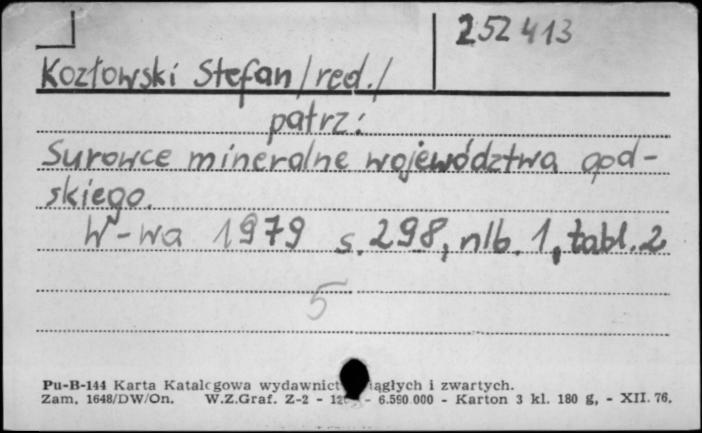 252413
Kozłowski Stefan /red./
patrz:
Surowce mineralne województwa opol-
skiego.
W-wa 1979 s. 298, nlb. 1, tabl. 2
5
Pu-B-144 Karta Katalogowa wydawnict ągłych i zwartych.
Zam. 1648/DW/On. W.Z.Graf. Z-2 - - 6.590 000 - Karton 3 kl. 180 g, - XII. 76.